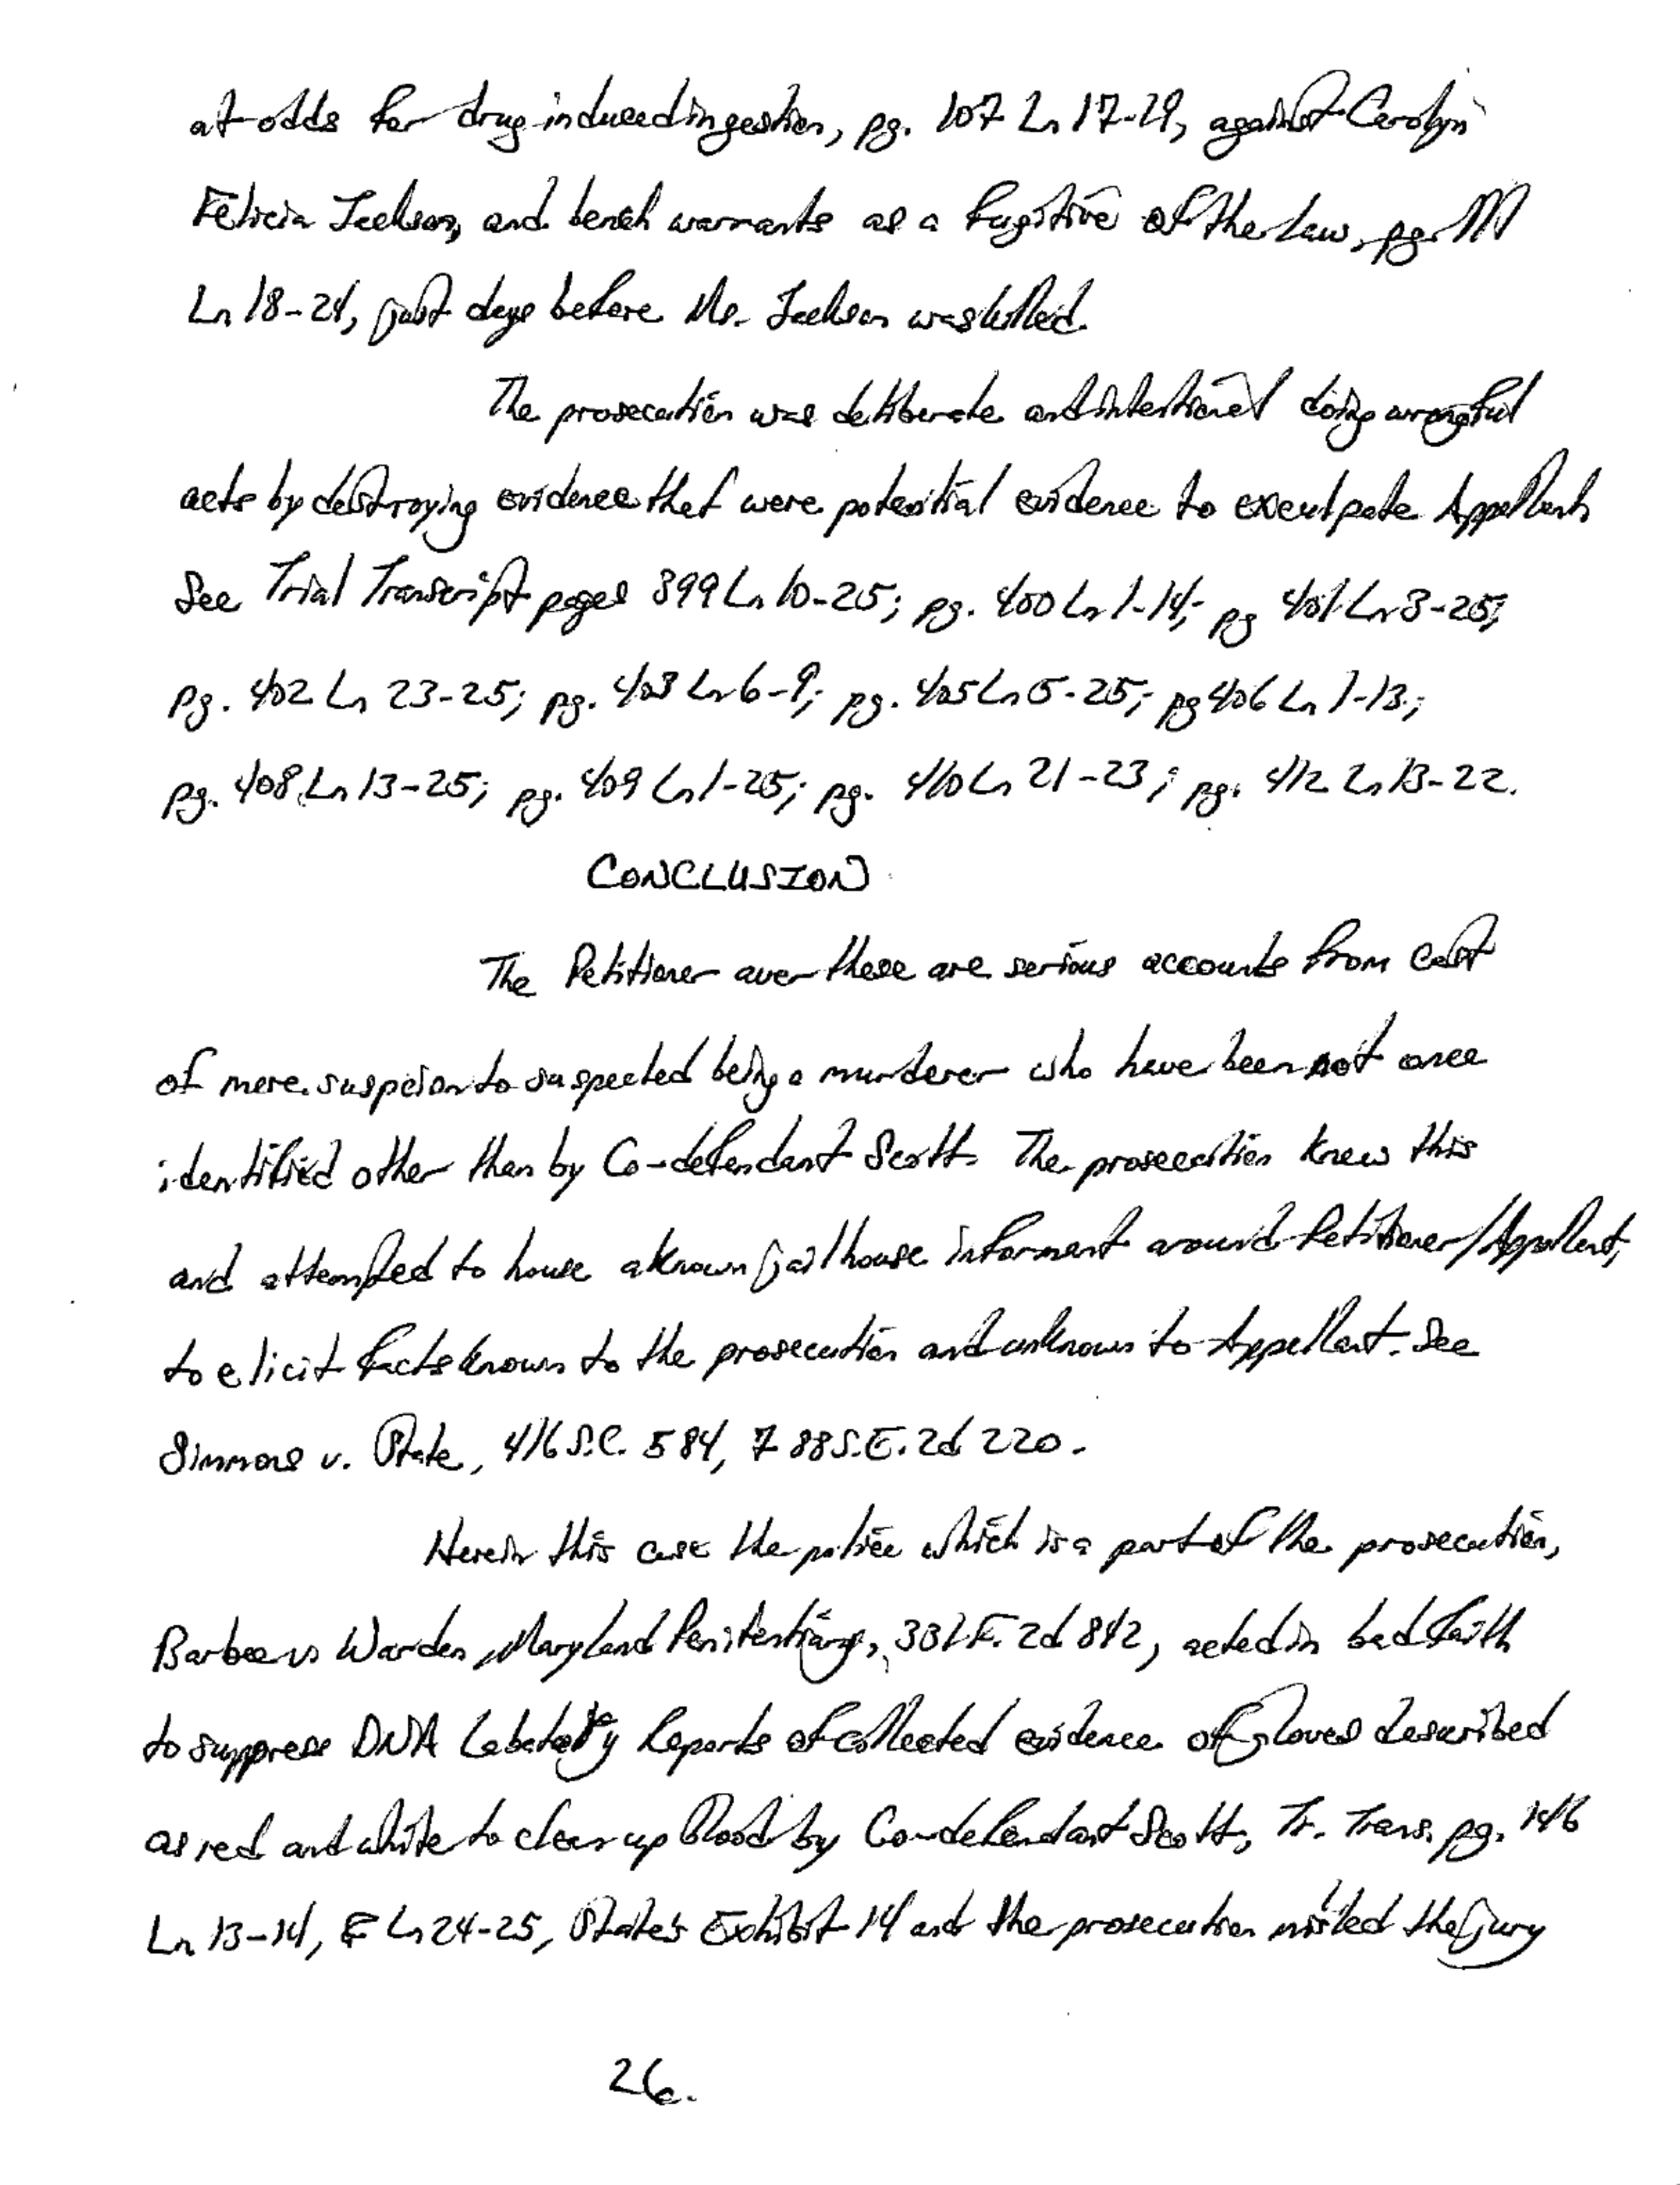 at odds for drug induced ingestion, pg. 107 Ln 17-21, against Carolyn
Felicia Jackson, and bench warrants as a fugitive of the law, pg. 111
Ln 18-21, just days before Ms. Jackson was killed.
The prosecution was deliberate and intentional doing wrongful
acts by destroying evidence that were potential evidence to exculpate Appellant.
See Trial Transcript pages 399 Ln 10-25; pg. 400 Ln 1-14; pg 401 Ln 3-25;
pg. 402 Ln 23-25; pg. 403 Ln 6-9; pg. 405 Ln 5-25; pg 406 Ln 1-13;
pg. 408 Ln 13-25; pg. 409 Ln 1-25; pg. 410 Ln 21-23; pg. 412 Ln 13-22.
CONCLUSION
The Petitioner aver these are serious accounts from cast
of mere suspcion to suspected being a murderer who have been not once
identified other than by Co-defendant Scott. The prosecution knew this
and attempted to house a known jailhouse informant around Petitioner/Appellant,
to elicit facts known to the prosecution and unknown to Appellant. See
Simmons v. State, 416 S.C. 584, 788 S.E. 2d 220.
Herein this case the police which is a part of the prosecution,
Barbee vs Warden, Maryland Penitentiary, 331 F. 2d 842, acted in bad faith
to suppress DNA Labatory Reports of collected evidence of gloves described
as red and white to clean up blood by Co-defendant Scott, Tr. Trans. pg. 146
Ln 13-14, & Ln 24-25, State's Exhibit 14 and the prosecution misled the jury
26.